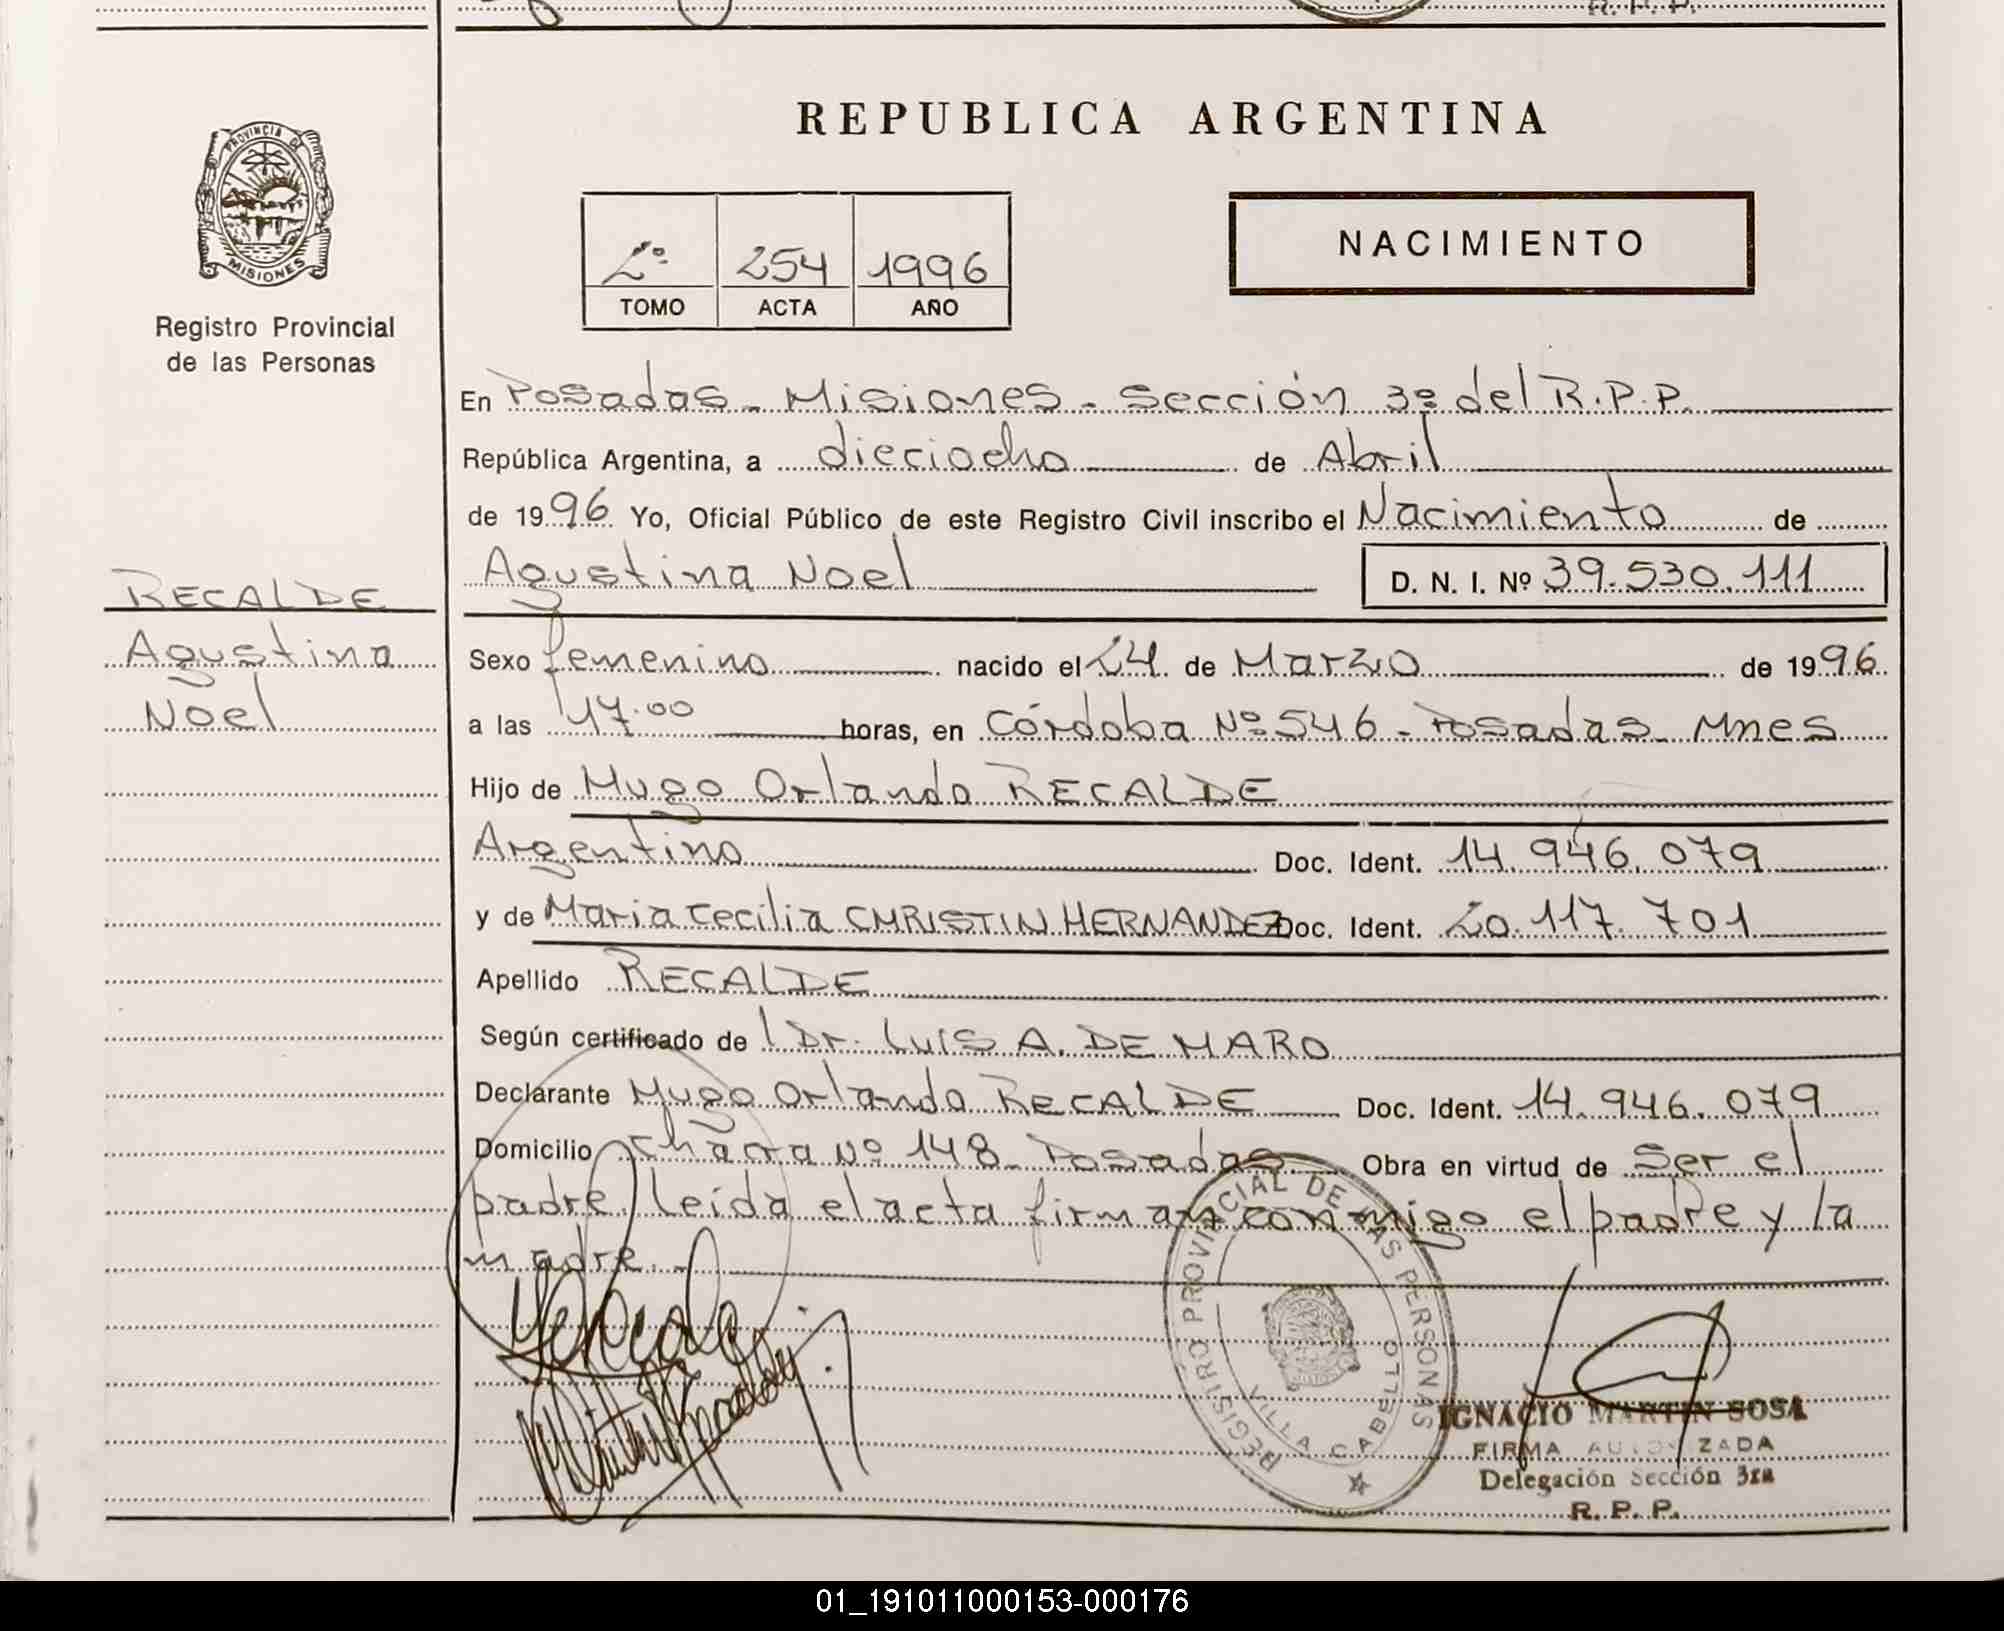 R. P. P.
REPUBLICA ARGENTINA
PROVINCIA DE
MISIONES
Registro Provincial
de las Personas
2º 254 1996
TOMO ACTA AÑO
NACIMIENTO
En Posadas - Misiones - Sección 3º del R.P.P.
República Argentina, a dieciocho de Abril
de 1996 Yo, Oficial Público de este Registro Civil inscribo el Nacimiento de
Agustina Noel D. N. I. Nº 39.530.111
RECALDE
Agustina
Noel
Sexo femenino nacido el 24 de Marzo de 1996
a las 17.00 horas, en Córdoba Nº 546 - Posadas - Mnes
Hijo de Hugo Orlando RECALDE
Argentino Doc. Ident. 14.946.079
y de Maria Cecilia CHRISTIN HERNANDEZ Doc. Ident. 20.117.701
Apellido RECALDE
Según certificado de Dr. LUIS A. DE MARO
Declarante Hugo Orlando RECALDE Doc. Ident. 14.946.079
Domicilio Chacra Nº 148 - Posadas Obra en virtud de Ser el
padre. leída el acta firman conmigo el padre y la
madre. -
REGISTRO PROVINCIAL DE LAS PERSONAS
VILLA CABELLO
IGNACIO MARTIN SOSA
FIRMA AUTORIZADA
Delegación Sección 3ra
R. P. P.
01_191011000153-000176